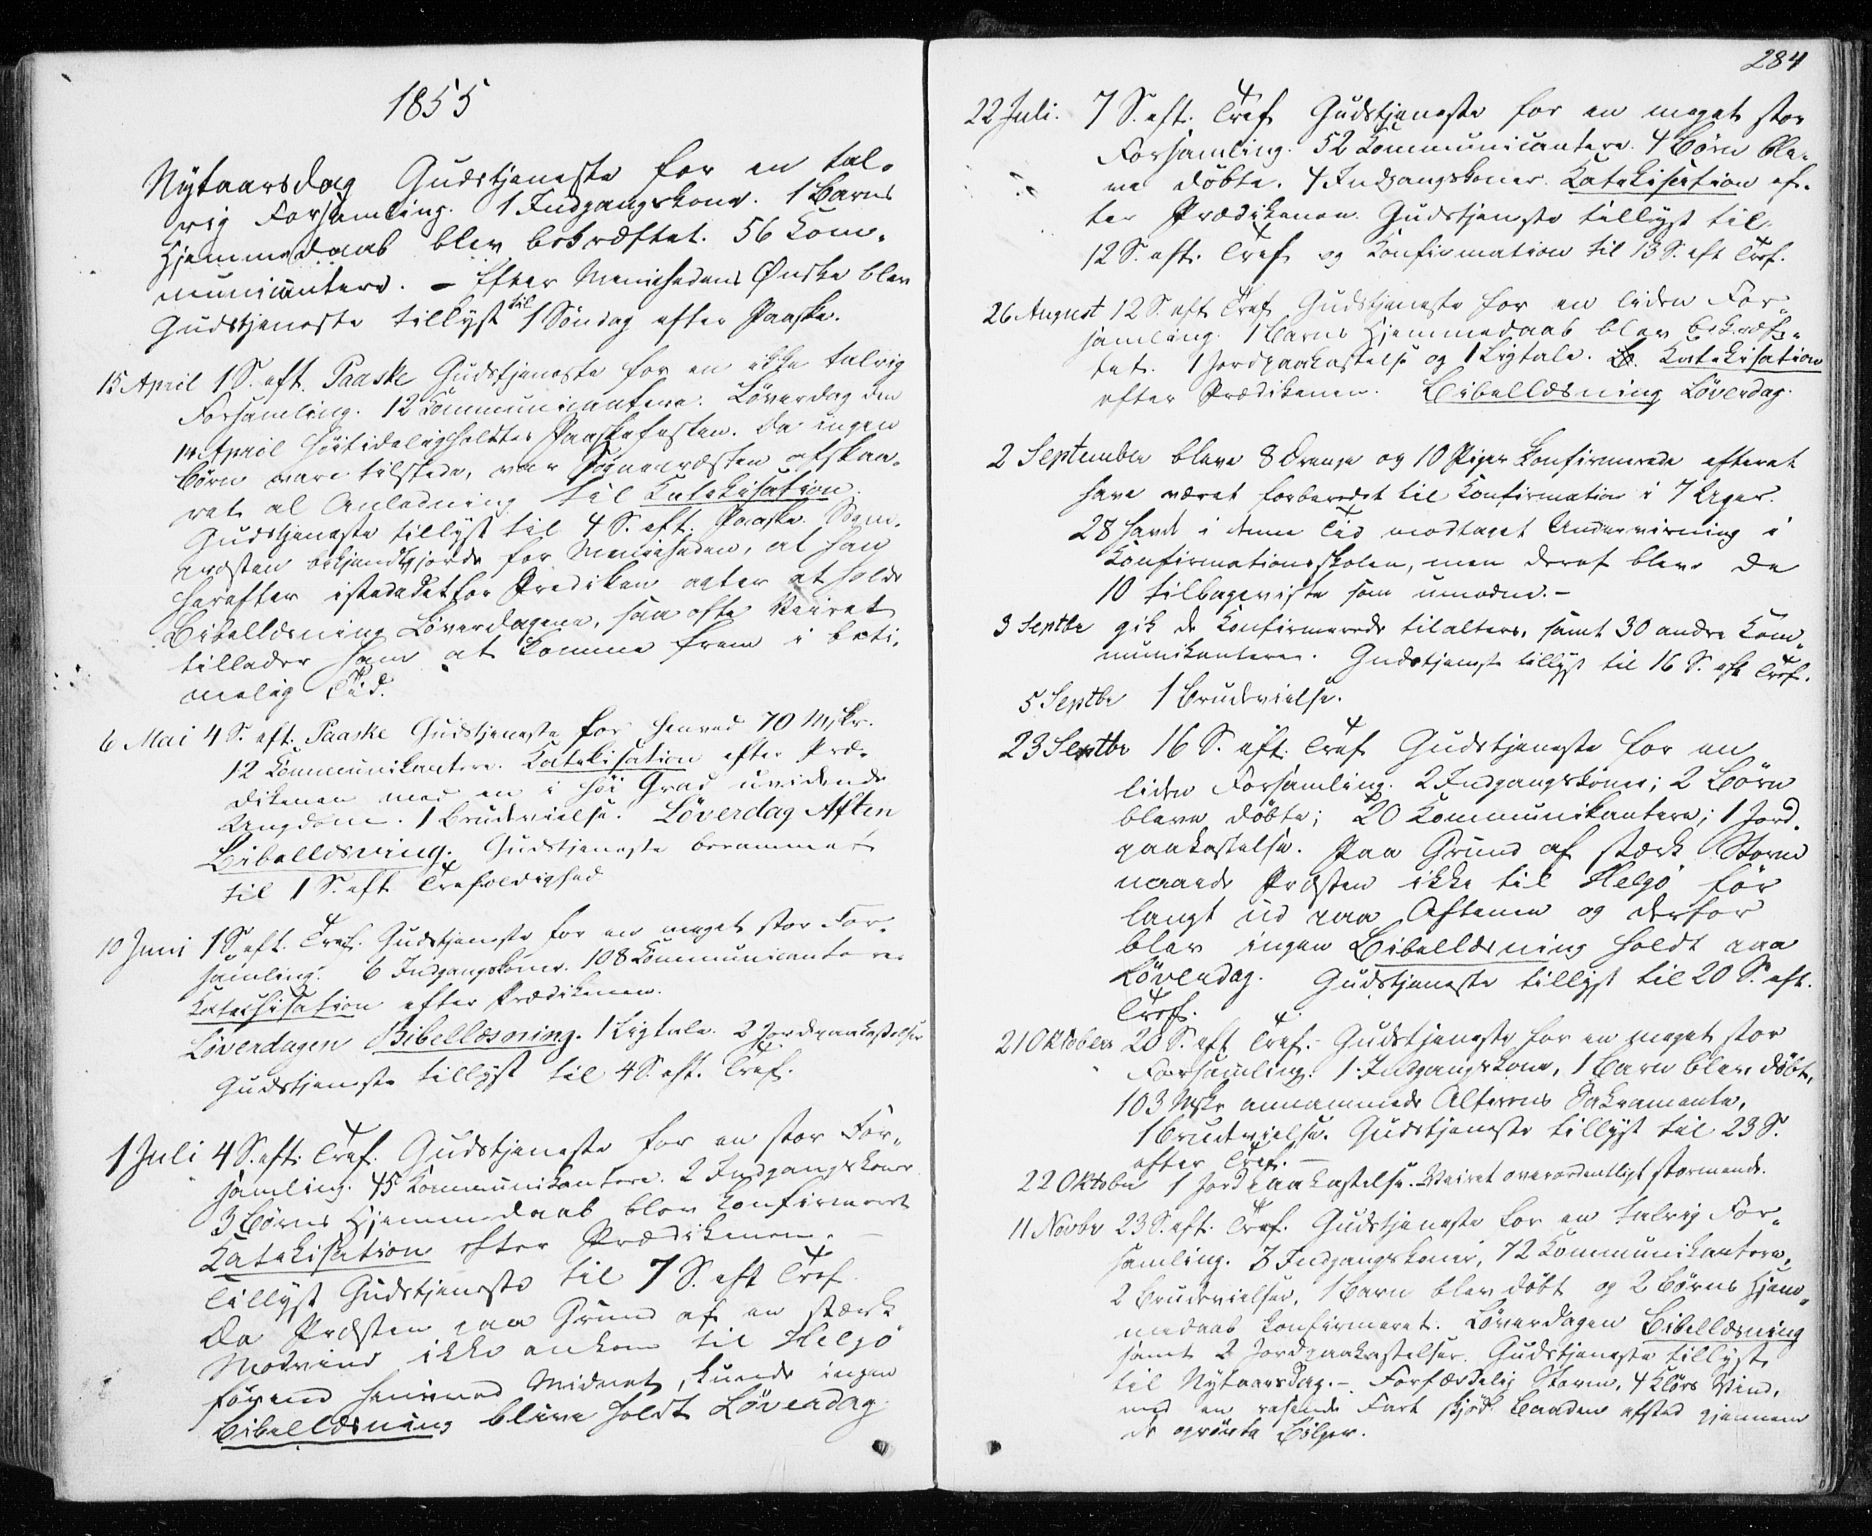 1855
Nytaarsdag Gudstjeneste for en tal-
rig Forsamling. 1 Indgangskone. 1 Barns
Hjemmedaab blev bekræftet. 56 Kom-
municantere. – Efter Menighedens Ønske blev
Gudstjeneste tillyst til 1 Søndag efter Paaske.
15 April 1 S. eft. Paaske Gudstjeneste for en ikke talrig
Forsamling. 12 Kommunicantere. Løverdag den
14 April høitideligholdtes Paaskefesten. Da ingen
Børn vare tilstede, var Sognepræsten afskaa-
ret al Anledning til Katekisation.
Gudstjeneste tillyst til 4 S. eft. Paaske. Sogne-
præsten bekjendtgjorde for Menigheden, at han
herefter istedetfor Prediken agter at holde
Bibellæsning Løverdagene, saa ofte Veiret
tillader ham at komme frem i beti-
melig Tid.
6 Mai 4 S. eft. Paaske Gudstjeneste for henved 70 Mskr.
12 Kommunikantere. Katekisation efter Præ-
dikenen med en i høi Grad uvidende
Ungdom. 1 Brudevielse. Løverdag Aften
Bibellæsning. Gudstjeneste berammes
til 1 S. eft Trefoldighed
10 Juni 1 S. eft. Tref. Gudstjeneste for en meget stor For-
samling. 6 Indgangskoner. 108 Kommunicantere
Katechisation efter Prædikenen.
Løverdagen Bibellæsning. 1 Ligtale. 2 Jordpaakastelser
Gudstjeneste tillyst til 4 S. eft. Tref.
1 Juli 4 S. eft. Tref. Gudstjeneste for en stor For-
samling. 45 Kommunikantere. 2 Indgangskoner
3 Børns Hjemmedaab blev konfirmeret
Katekisation efter Prædikenen. –
Tillyst Gudstjeneste til 7 S. eft Tref.
Da Præsten paa Grund af en stærk
Modvind ikke ankom til Helgö
førend henimod Midnat, kunde ingen
Bibellæsning blive holdt Løverdag.
284
22 Juli. 7 S. eft. Tref. Gudstjeneste for en meget stor
Forsamling. 52 Kommunicantere. 4 Børn ble-
ve døbte. 4 Indgangskoner. Katekisation ef-
ter Prædikenen. Gudstjeneste tillyst til
12 S. eft. Tref og Konfirmation til 13 S. eft Tref.
26 August 12 S. eft Tref Gudstjeneste for en liden For-
samling. 1 Barns Hjemmedaab blev bekræf-
tet. 1 Jordpaakastelse og 1 Ligtale. Katekisation
efter Prædikenen. Bibellæsning Løverdag.
2 September bleve 8 Drenge og 10 Piger konfirmerede efterat
have været forberedet til Konfirmation i 7 Uger.
28 havde i denne Tid modtaget Undervisning i
Konfirmationsskolen, men deraf bleve de
10 tilbageviste som umodne. –
3 Septbr gik de Konfirmerede tilalters, samt 30 andre Kom-
munikantere. Gudstjeneste tillyst til 16 S. eft Tref.
5 Septbr 1 Brudevielse.
23 Septbr 16 S. eft. Tref Gudstjeneste for en
liden Forsamling. 2 Indgangskoner; 2 Børn
bleve døbte; 20 Kommunikantere; 1 Jord-
paakastelse. Paa Grund af stærk Storm
naaede Præsten ikke til Helgö før
langt ud paa Aftenen og derfor
blev ingen Bibellæsning holdt paa
Løverdag. Gudstjeneste tillyst til 20 S. eft.
Tref.
21 Oktober 20 S. eft Tref. – Gudstjeneste for en meget stor
Forsamling. 1 Indgangskone, 1 Barn blev døbt,
103 Mskr annammede Alterens Sakramente,
1 Brudevielse. Gudstjeneste tillyst til 23 S.
efter Tref. –
22 Oktober 1 Jordpaakastelse. Veiret overordentligt stormende.
11 Novbr 23 S. eft. Tref. Gudstjeneste for en talrig For-
samling. 3 Indgangskoner, 72 Kommunikantere,
2 Brudevielser, 1 Barn blev døbt og 2 Børns Hjem-
medaab konfirmeret. Løverdagen Bibellæsning
samt 2 Jordpaakastelser. Gudstjeneste tillyst
til Nytaarsdag. – Forfærdelig Storm, 4 Klørs Vind,
med en rasende Fart skjød Baaden afsted gjennem
de oprörte Bölger.